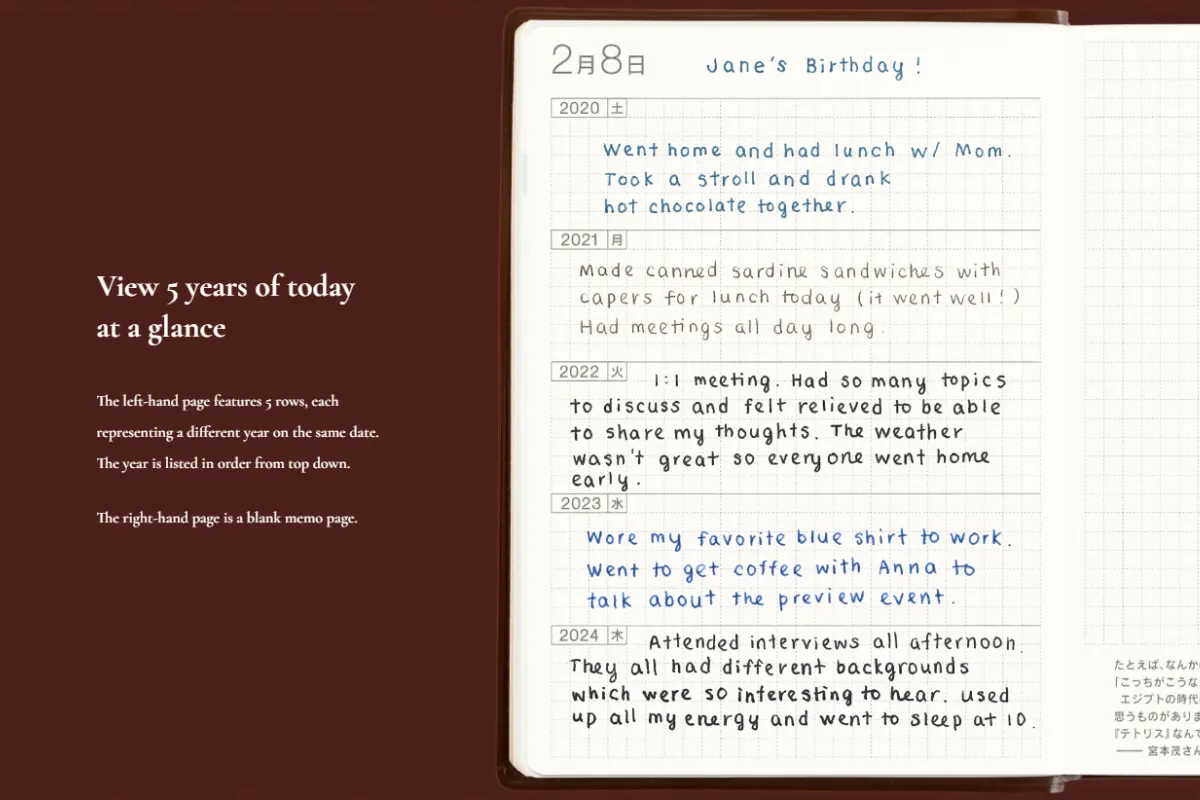 View 5 years of today
at a glance
The left-hand page features 5 rows, each
representing a different year on the same date.
The year is listed in order from top down.
The right-hand page is a blank memo page.
2月8日 Jane's Birthday!
2020 土
Went home and had lunch w/ Mom.
Took a stroll and drank
hot chocolate together.
2021 月
Made canned sardine sandwiches with
capers for lunch today (it went well!)
Had meetings all day long.
2022 火
1:1 meeting. Had so many topics
to discuss and felt relieved to be able
to share my thoughts. The weather
wasn't great so everyone went home
early.
2023 水
Wore my favorite blue shirt to work.
Went to get coffee with Anna to
talk about the preview event.
2024 木
Attended interviews all afternoon.
They all had different backgrounds
which were so interesting to hear. used
up all my energy and went to sleep at 10.
たとえば、なんか
「こっちがこうな
エジプトの時代
思うものがありま
『テトリス』なんて
── 宮本茂さん